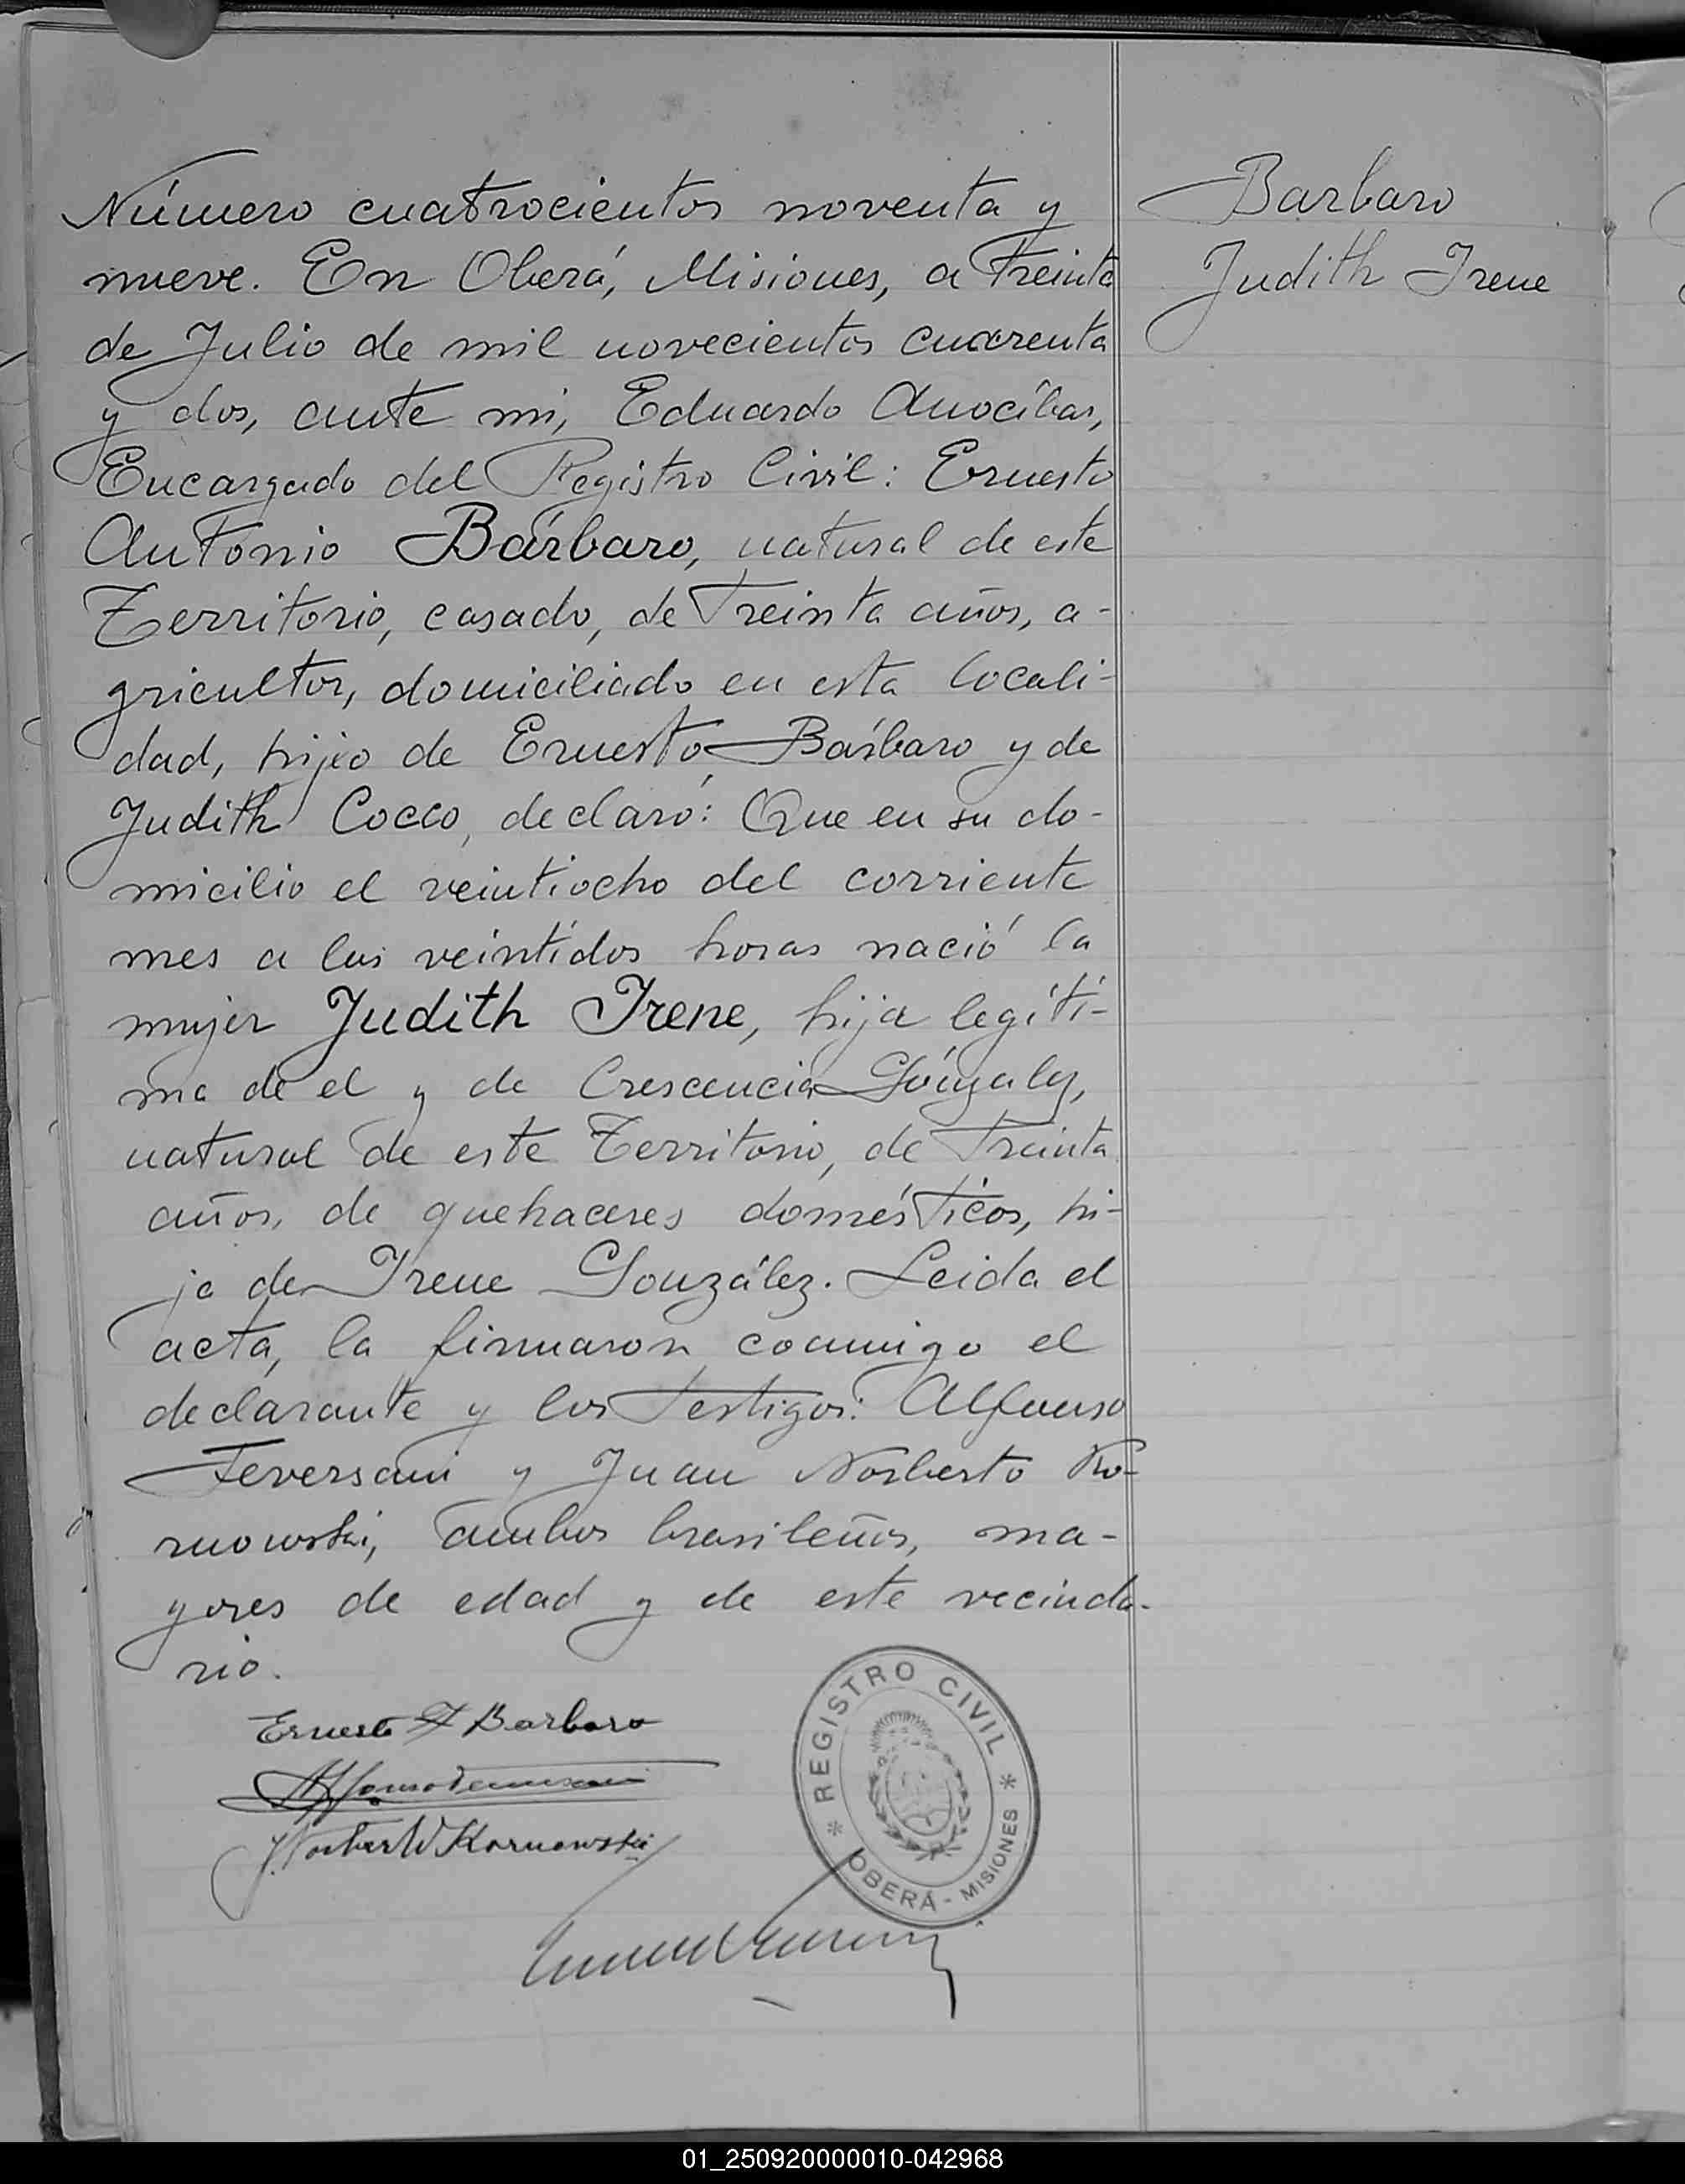 Número cuatrocientos noventa y
nueve. En Oberá, Misiones, a treinta
de Julio de mil novecientos cuarenta
y dos, ante mi, Eduardo Anocíbar,
Encargado del Registro Civil: Ernesto
Antonio Bárbaro, natural de este
Territorio, casado, de treinta años, a-
gricultor, domiciliado en esta locali-
dad, hijo de Ernesto Bárbaro y de
Judith Cocco, declaró: Que en su do-
micilio el veintiocho del corriente
mes a las veintidos horas nació la
mujer Judith Irene, hija legíti-
ma de el y de Crescencia Gónzalez,
natural de este Territorio, de treinta
años, de quehaceres domésticos, hi-
ja de Irene González. Leida el
acta, la firmaron conmigo el
declarante y los testigos: Alfonso
Teversani y Juan Norberto Ko-
rnowski, ambos brasileños, ma-
yores de edad y de este vecinda-
rio.
Barbaro
Judith Irene
Ernesto A Barbaro
J. Norberto Kornowski
REGISTRO CIVIL
OBERÁ - MISIONES
01_250920000010-042968